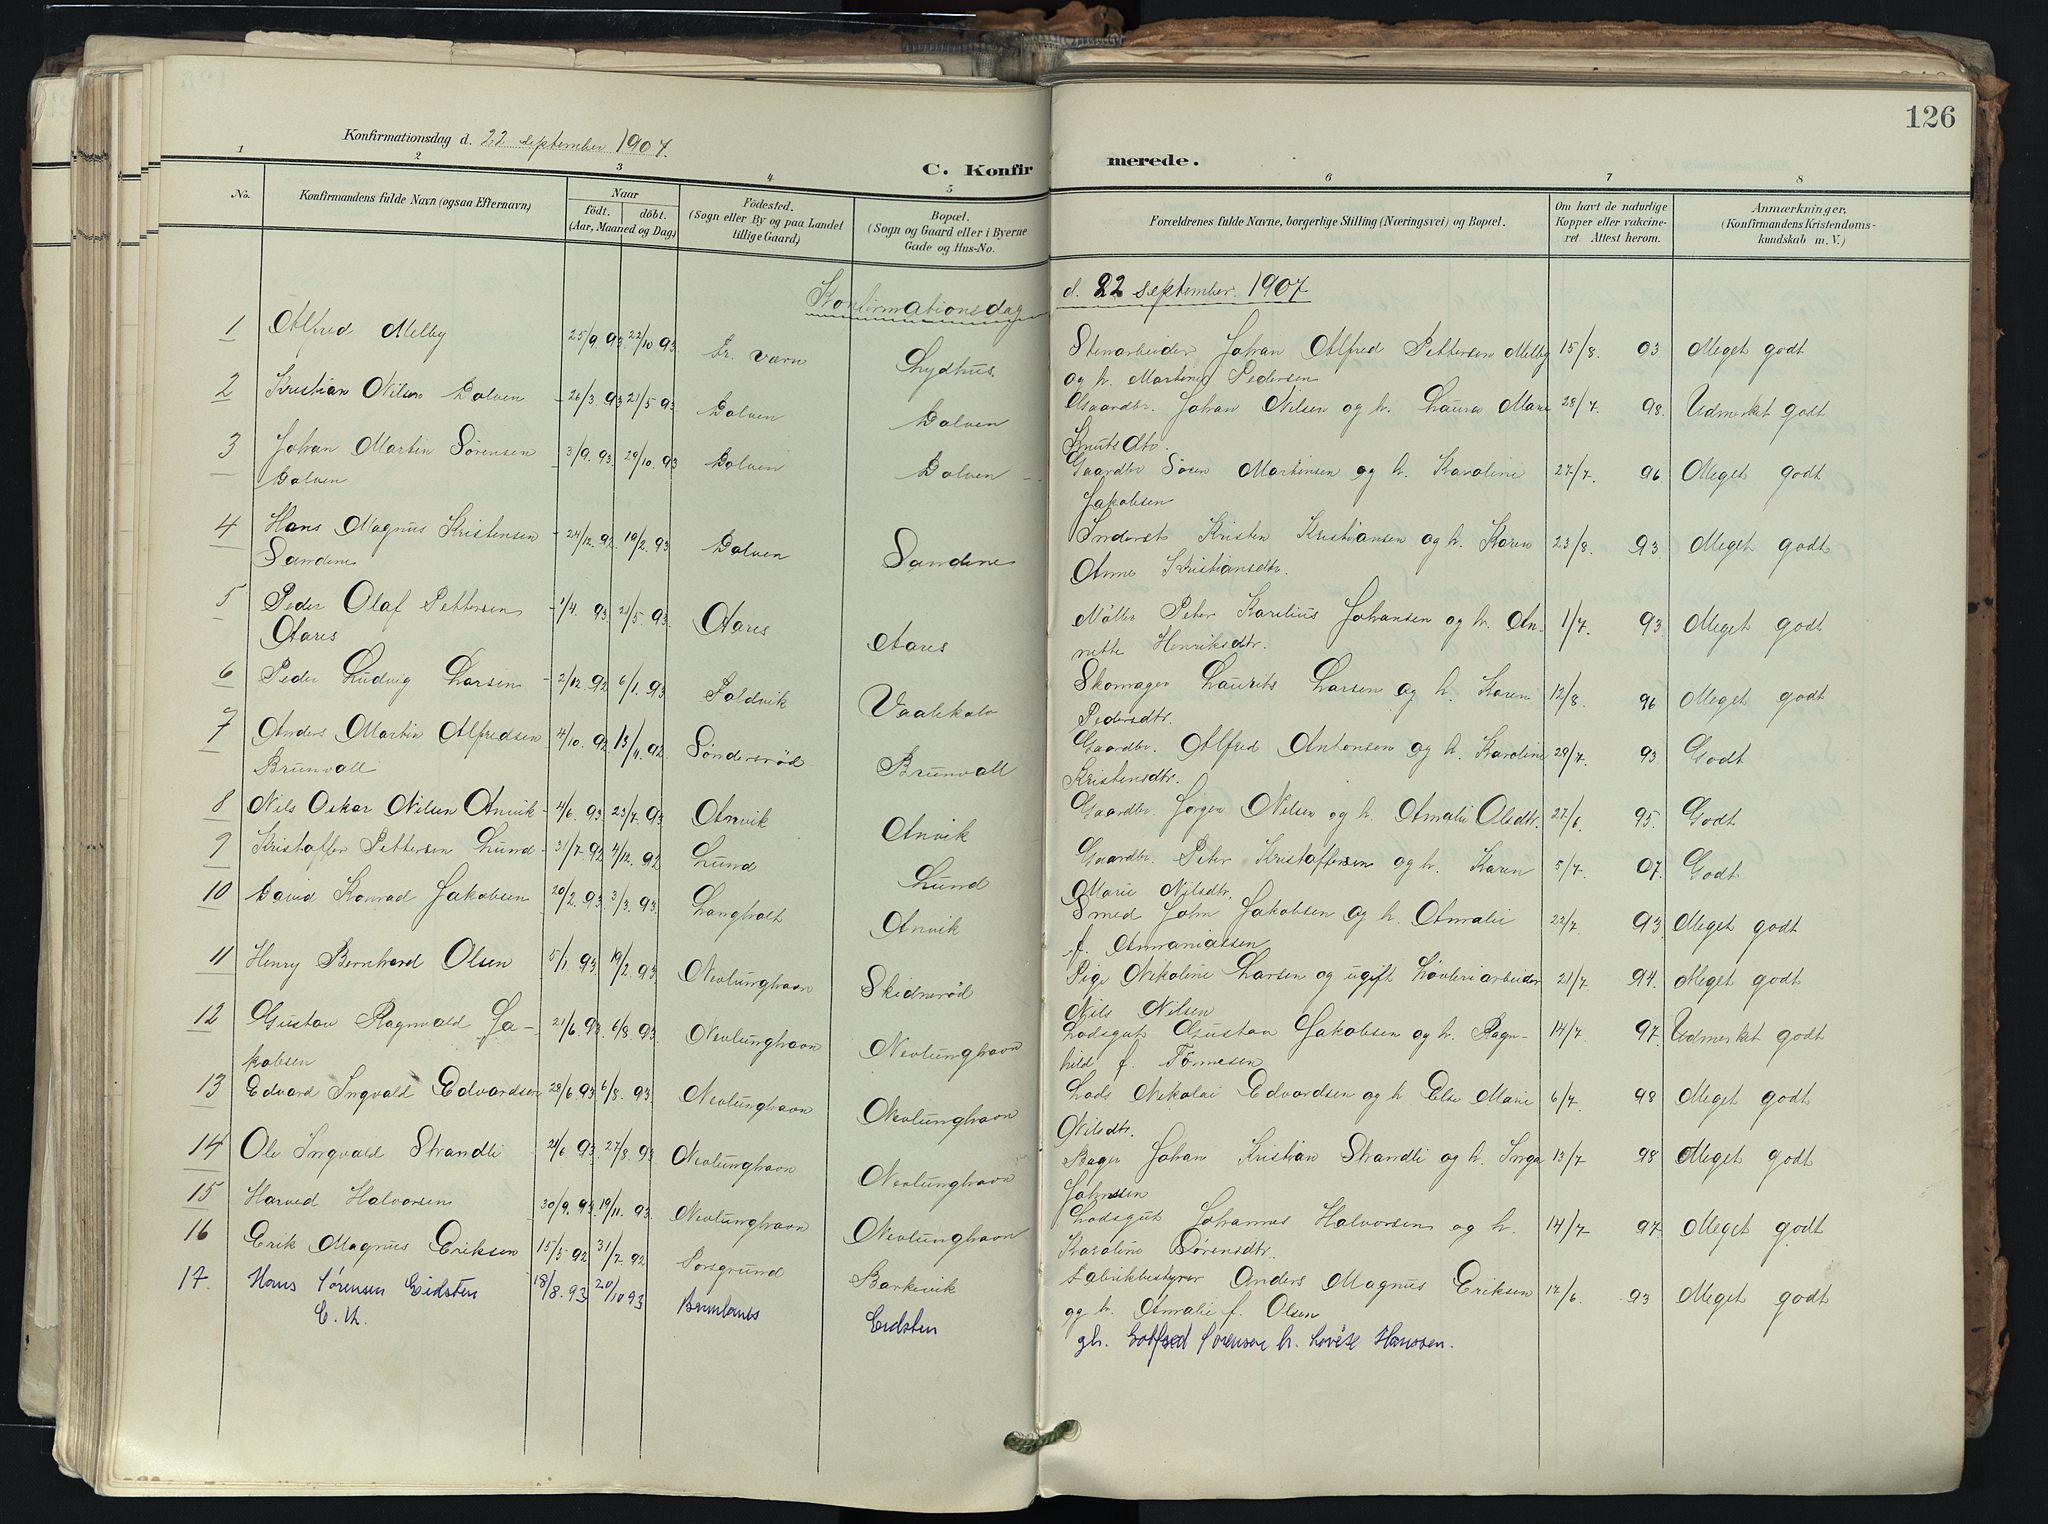 126
Konfirmationsdag d. 22 september 1907.
C. Konfirmerede.
1 2 3 4 5 6 7 8
No.
Konfirmandens fulde Navn (ogsaa Efternavn)
Naar
födt. döbt.
(Aar, Maaned og Dag)
Födested.
(Sogn eller By og paa Landet
tillige Gaard)
Bopæl.
(Sogn og Gaard eller i Byerne
Gade og Hus-No.
Forældrenes fulde Navne, borgerlige Stilling (Næringsvei) og Bopæl.
Om havt de naturlige
Kopper eller vakcine-
ret. Attest herom.
Anmærkninger.
(Konfirmandens Kristendoms-
kundskab m. V.)
Konfirmationsdag d. 22 september 1907
1 Alfred Melby 25/9. 93. 22/10 93 Fr. værn Lydhus Stenarbeider Johan Alfred Pettersen Melby 15/8. 03 Meget godt
og h. Martine Pedersen
2 Kristian Nilsen Dolven 26/3. 93 21/5 93 Dolven Dolven Gaardbr. Johan Nilsen og h. Laura Marie 28/7. 98. Udmerket godt
Knutsdtr.
3 Johan Martin Sørensen 3/9. 93. 29/10. 93 Dolven Dolven Gaardbr Søren Martinsen og h. Karoline 27/7. 96. Meget godt
Dolven Jakobsen
4 Hans Magnus Kristensen 24/12. 92 19/2. 93 Dolven Sandene Inderst Kristen Kristiansen og h. Karen 23/8. 93 Meget godt
Sandene Anne Kristiansdtr.
5 Peder Olaf Pettersen 1/4. 93 21/5. 93 Aares Aares Møller Peter Karilius Johansen og h. An- 1/7. 93 Meget godt
Aares nette Henriksdtr.
6 Peder Ludvig Larsen 2/12. 92 6/1. 93 Foldvik Vaalekalv Skomager Laurits Larsen og h. Karen 12/8. 96 Meget godt
Pedersdtr.
7 Anders Martin Alfredsen 4/10. 92 13/11. 92 Søndersrød Brunvall Gaardbr. Alfred Antonsen og h. Karoline 29/7. 93 Godt
Brunvall Kristensdtr.
8 Nils Oskar Nilsen Anvik 4/6. 93 23/7. 93 Anvik Anvik Gaardbr. Jørgen Nilsen og h. Amalie Olsdtr. 27/6. 95. Godt
9 Kristoffer Pettersen Lund 31/7. 92 4/12. 92 Lund Lund Gaardbr. Peter Kristoffersen og h. Karen 5/7. 07. Godt
Marie Nilsdtr.
10 David Konrad Jakobsen 20/2. 93 3/3. 93 Langholt Anvik Smed John Jakobsen og h. Amalie 22/7. 93. Meget godt
f. Annaniassen
11 Henry Bernhard Olsen 5/1. 93 19/2. 93 Nevlunghavn Skidnerød Pige Nikoline Larsen og ugift Høvleriarbeider 21/7 94. Meget godt
Nils Nilsen
12 Gustav Ragnvald Ja- 21/6. 93 6/8. 93 Nevlunghavn Nevlunghavn Lodsgut Gustav Jakobsen og h. Ragn- 14/7. 97. Udmerket godt
kobsen hild f. Tønnesen
13 Edvard Ingvald Edvardsen 28/6. 93 6/8. 93 Nevlunghavn Nevlunghavn Lods Nikolai Edvardsen og h. Else Marie 6/7. 98 Meget godt
Nilsdtr.
14 Ole Ingvald Strandli 21/6 93 27/8. 93 Nevlunghavn Nevlunghavn Bager Johan Kristian Strandli og h. Inga 13/7 98 Meget godt
Johnsen
15 Harved Halvorsen 30/9. 93 19/11. 93 Nevlunghavn Nevlunghavn Lodsgut Johannes Halvorsen og h. 14/7 97. Meget godt
Karoline Sørensdtr.
16 Erik Magnus Eriksen 15/5 92 31/7. 92 Porsgrund Barkevik Fabrikbestyrer Anders Magnus Eriksen 14/6. 93 Meget godt
og h. Amalie f. Olsen
17. Hans Sørensen Eidsten 18/8. 93 20/10 93 Brunlanes Eidsten gb. Gotfred Sørensen h. Lovise Hanssen.